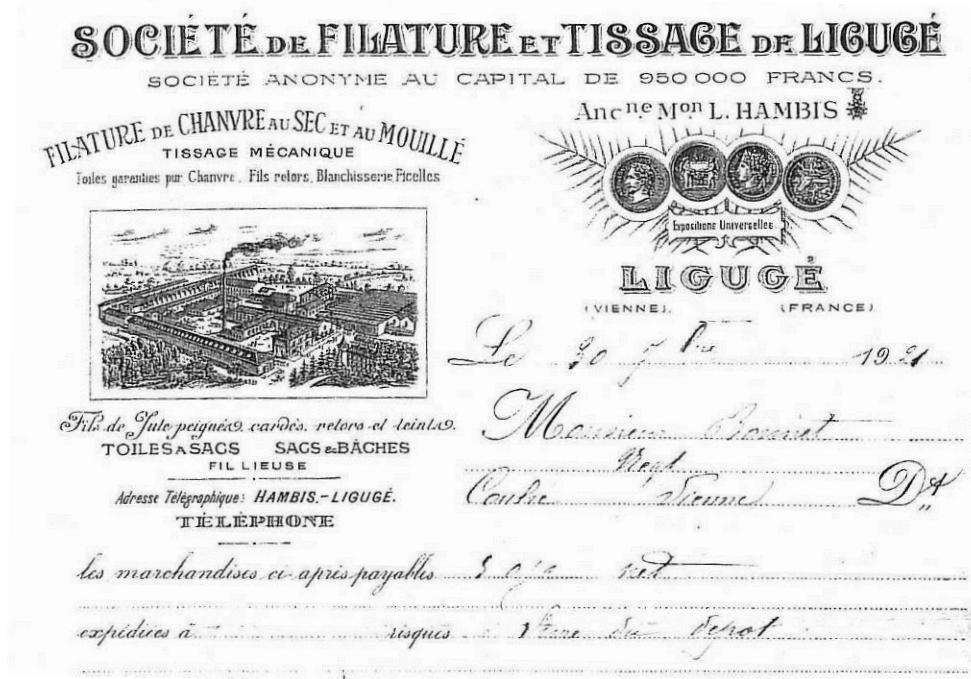 SOCIÉTÉ DE FILATURE ET TISSAGE DE LIGUGÉ
SOCIÉTÉ ANONYME AU CAPITAL DE 950 000 FRANCS.
FILATURE DE CHANVRE AU SEC ET AU MOUILLÉ
TISSAGE MÉCANIQUE
Toiles garanties pur Chanvre. Fils retors, Blanchisserie Ficelles
Ancne Mon L. HAMBIS
Expositions Universelles
LIGUGÉ
(VIENNE). (FRANCE)
Le 30 7bre 1921
Fils de Jute peignés, cardés, retors et teints.
TOILES A SACS SACS & BÂCHES
FIL LIEUSE
Adresse Télégraphique: HAMBIS.-LIGUGÉ.
TÉLÉPHONE
Monsieur Bonnet
Negt
Couhé Vienne Dt
les marchandises ci-après payables net
expédiées à risques du depot